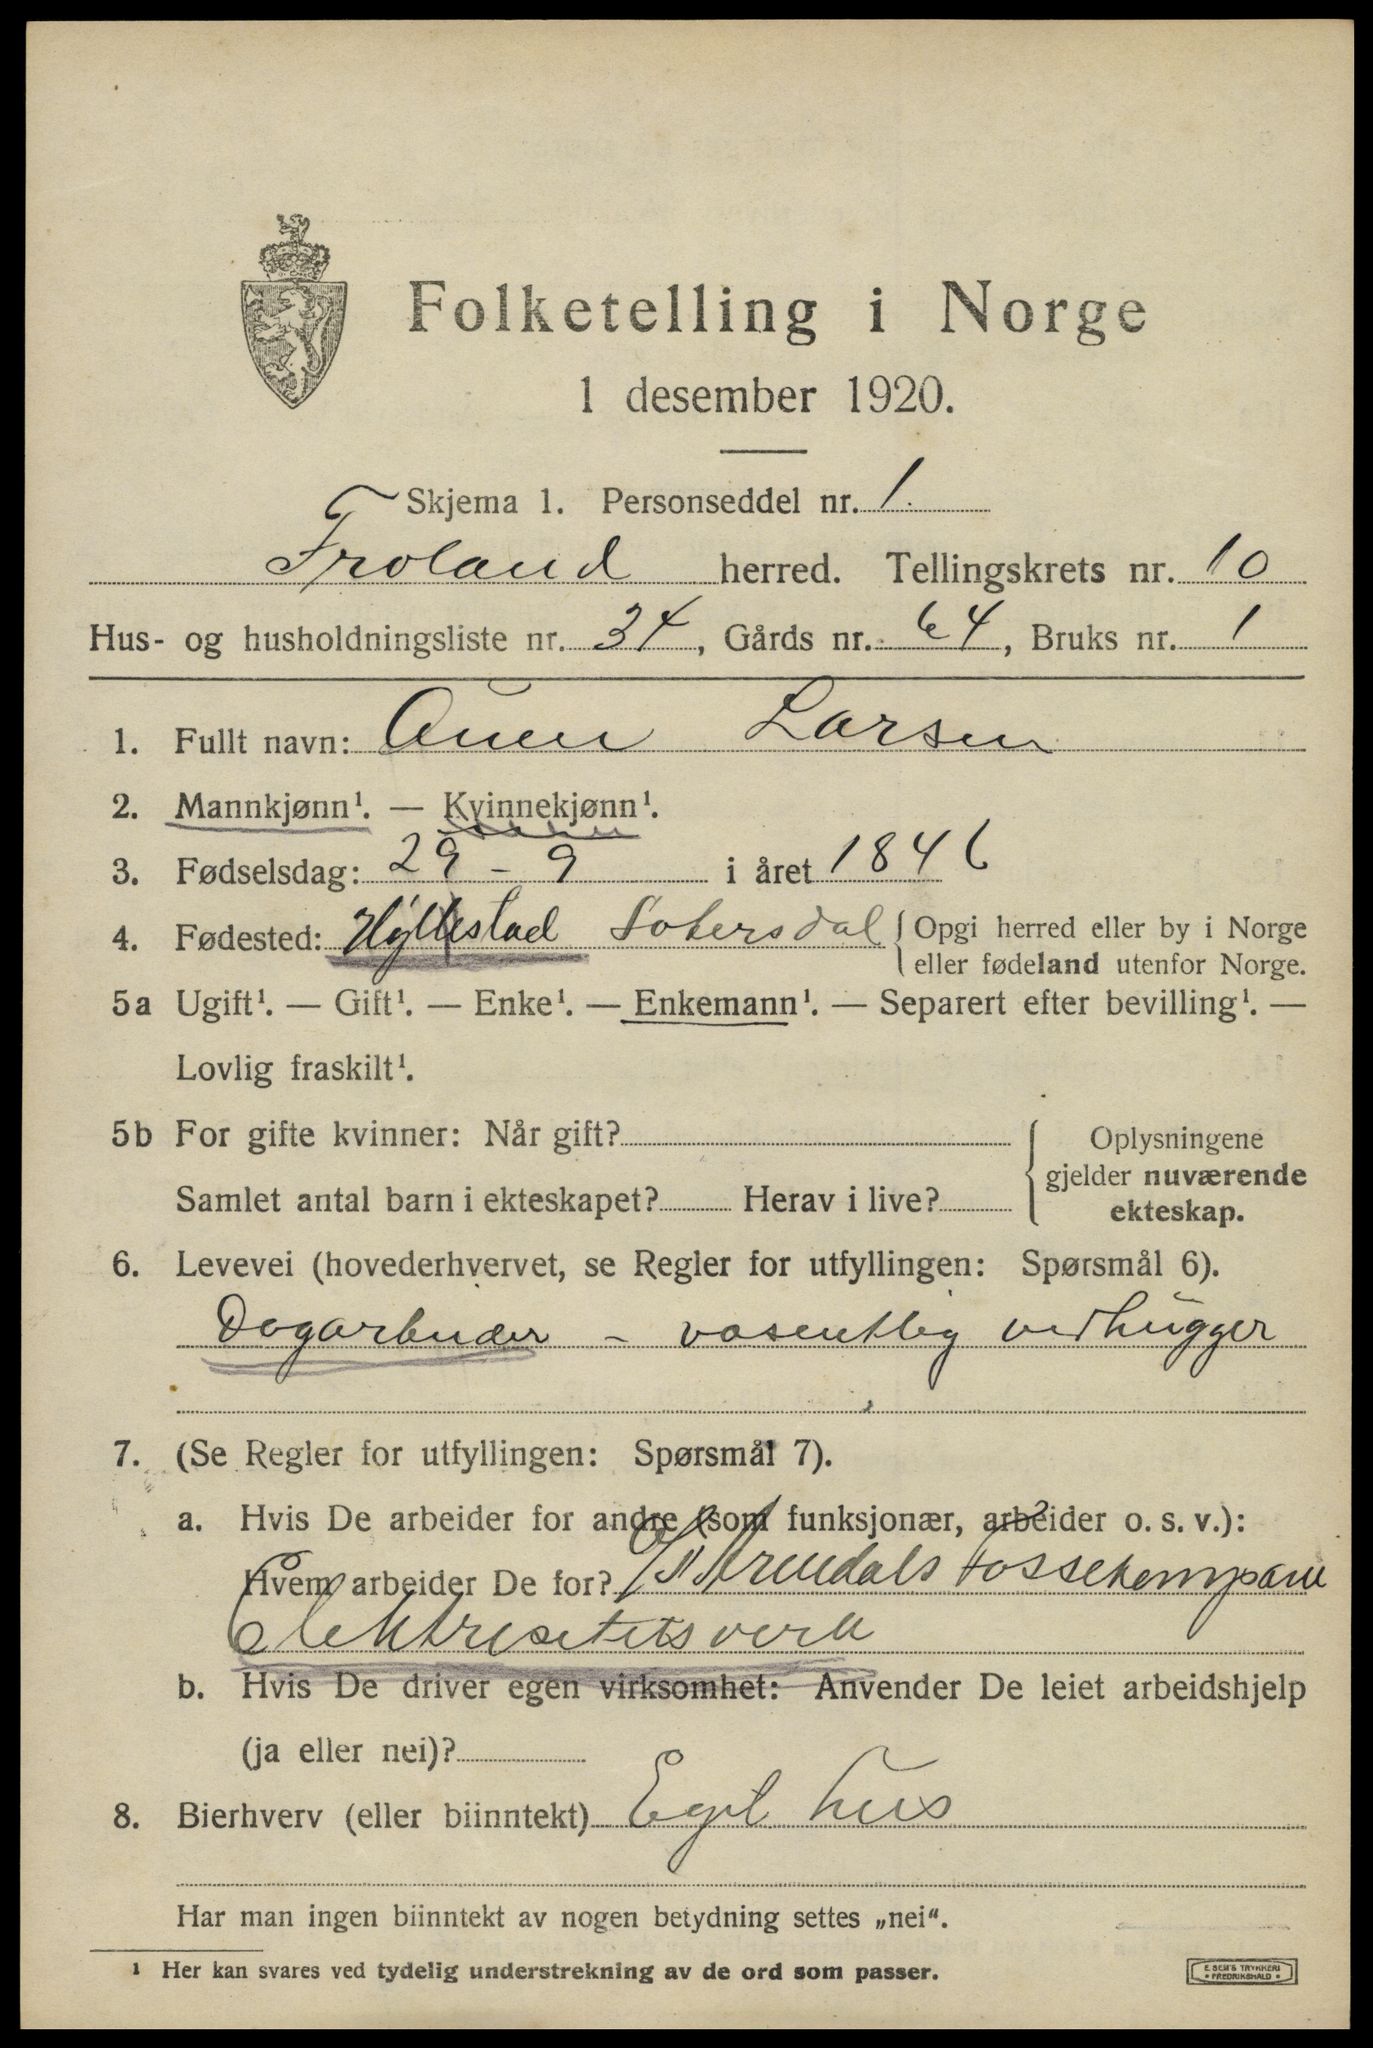 Folketelling i Norge
1 desember 1920.
Skjema 1. Personseddel nr. 1.
Froland herred. Tellingskrets nr. 10
Hus- og husholdningsliste nr. 34, Gårds nr. 64, Bruks nr. 1
1. Fullt navn: Auen Larsen
2. Mannkjønn¹. — Kvinnekjønn¹.
3. Fødselsdag: 29 - 9 i året 1846
4. Fødested: Hyllestad Setersdal { Opgi herred eller by i Norge
eller fødeland utenfor Norge.
5a Ugift¹. — Gift¹. — Enke¹. — Enkemann¹. — Separert efter bevilling¹. —
Lovlig fraskilt¹.
5b For gifte kvinner: Når gift?
Samlet antal barn i ekteskapet? Herav i live?
Oplysningene
gjelder nuværende
ekteskap.
6. Levevei (hovederhvervet, se Regler for utfyllingen: Spørsmål 6).
Dagarbeider - vasentlig vedhugger
7. (Se Regler for utfyllingen: Spørsmål 7).
a. Hvis De arbeider for andre (som funksjonær, arbeider o. s. v.):
Hvem arbeider De for? A/S Arendals Fossekompani
Elektrisitetsverk
b. Hvis De driver egen virksomhet: Anvender De leiet arbeidshjelp
(ja eller nei)?
8. Bierhverv (eller biinntekt) Eget hus
Har man ingen biinntekt av nogen betydning settes „nei“.
¹ Her kan svares ved tydelig understrekning av de ord som passer.
E. SEM'S TRYKKERI
• FREDRIKSHALD •